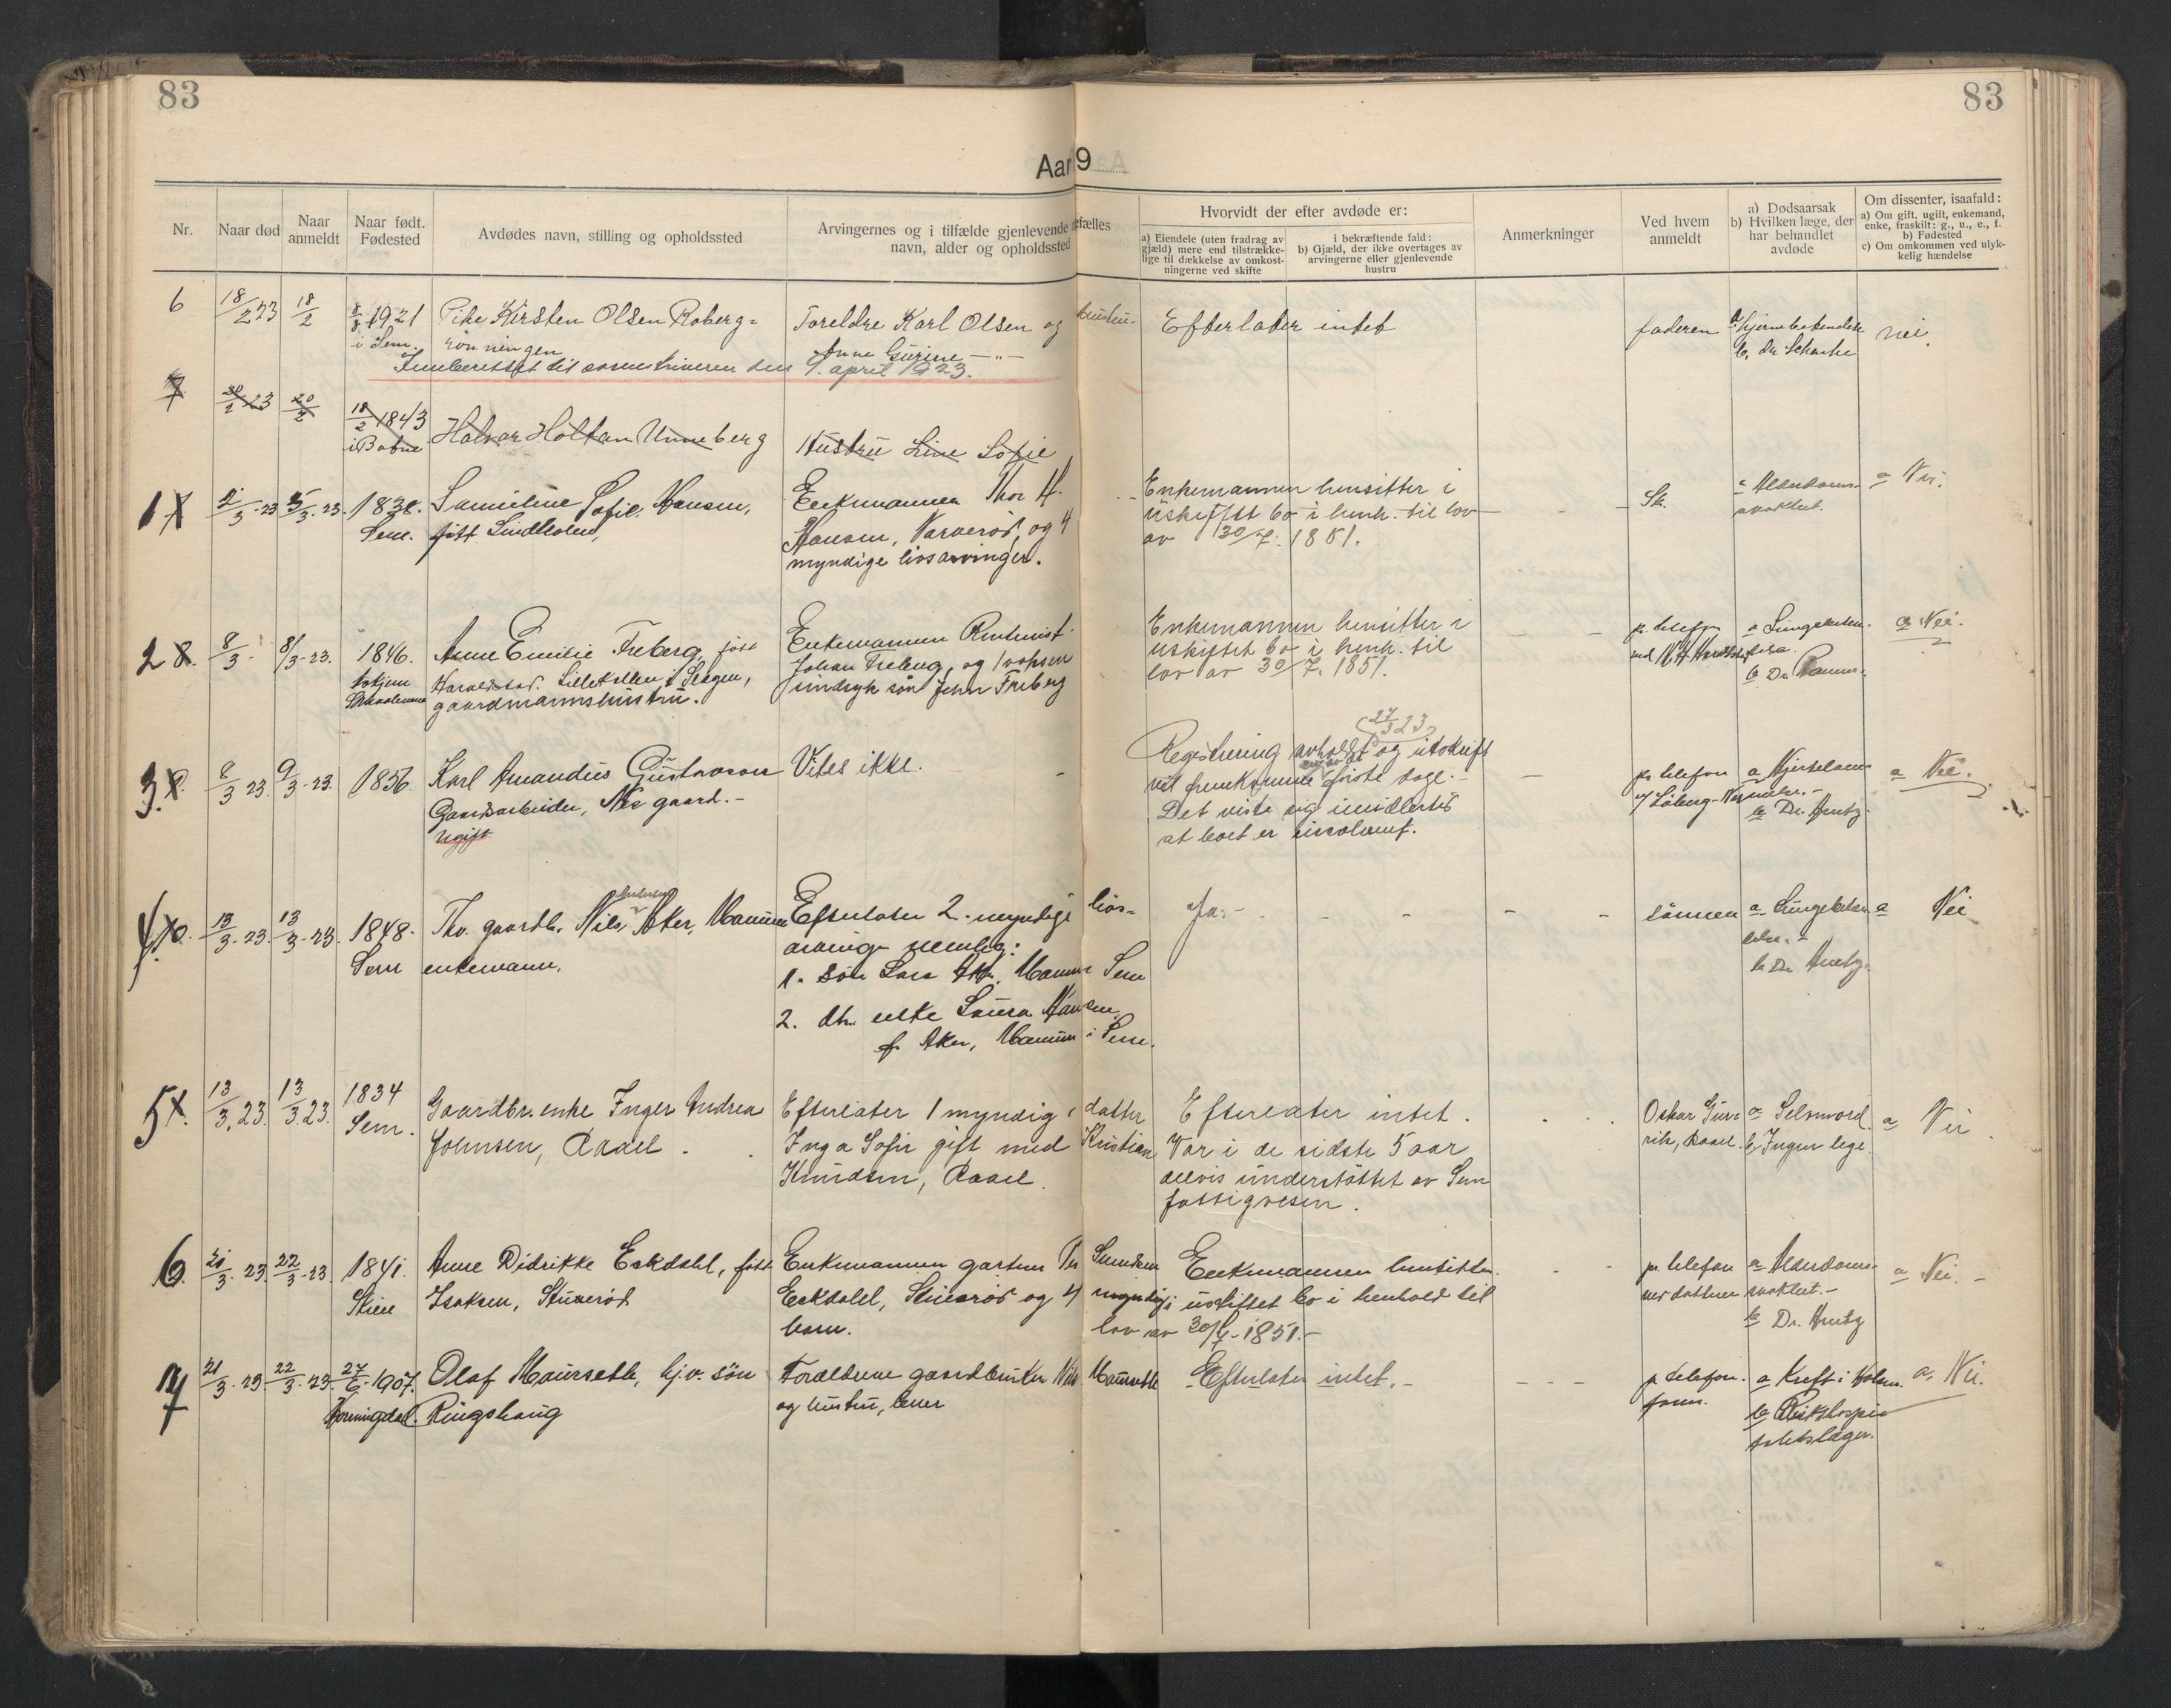 83
83
Aar 9
Nr.
Naar død
Naar anmeldt
Naar født. Fødested
Avdødes navn, stilling og opholdssted
Arvingernes og i tilfælde gjenlevende
navn, alder og opholdssted
efælles
Hvorvidt der efter avdøde er:
a) Eiendele (uten fradrag av
gjæld) mere end tilstrække-
lige til dækkelse av omkost-
ningerne ved skifte
i bekræftende fald:
b) Gjæld, der ikke overtages av
arvingerne eller gjenlevende
hustru
Anmerkninger
Ved hvem
anmeldt
a) Dødsaarsak
b) Hvilken læge, der
har behandlet
avdøde
Om dissenter, isaafald:
a) Om gift, ugift, enkemand,
enke, fraskilt: g., u., e., f.
b) Fødested
c) Om omkommen ved ulyk-
kelig hændelse
6 18/2 23 18/2 8/8 1921 Pike Kirsten Olsen Roberg= Foreldre Karl Olsen og hustru Efterlater intet faderen a. hjernebetendelse nei.
i Sem. rønningen Anne Gurine —"— b, dr Scharke
Innberettet til sorenskriveren den 9. april 1923.
7 20/2 23 20/2 18/2 1843 Halvor Holtan Unneberg Hustru Line Sofie
i Botne
1 5/3-23. 1838. Samiline Sofie Hansen, Enkemannen Thor H. Enkemannen hensitter i Sk. a Alderdoms- a Nei.
Sem. født Lindholm, Hansen, Varverød, og 4 uskiftet bo i henh. til lov svakhet.
myndige livsarvinger. av 30/7. 1851.
2 8. 8/3. 8/3-23. 1846. Anne Emilie Freberg, født Enkemannen Johan Freberg, og 1 voksen Enkemannen hensitter i pr. telefon a Lungebeten- a Nei.
Haraldstad. Lillekollen i Slagen, sindsyk søn John Freberg uskiftet bo i henh. til delse.
gaardmannshustru. lov av 30/7. 1851. b Dr.
3. 8/3 23. 9/3-23. 1856. Karl Amandus Gustavson Vites ikke. (27/3 23) a Nei.
Gaardsarbeider, Nes gaard.- Registrering avholdt og utskrift pr telefon a Hjertelam-
Ugift vil fremkomme første dage.- v/ Løberg-Nes melse.-
Det viste sig imidlertid b Dr. Arntz.
at boet er insolvent.
4 13/3.23. 13/3-23. 1848. Fhv. gaardb. Nils Aker, Efterlater 2 myndige livs- Ja.- sønnen a Lungebeten- a Nei
Sem enkemann. arvinger nemlig: delse.-
1. søn Lars Sem b Dr. Arntz.
2. dtr. enke Laura Hansen,
f. Aker, i Sem.
5 13/3.23. 13/3.23. 1834 Gaardbr. enke Inger Andrea Efterlater 1 myndig datter Efterlater intet. Oskar Gus- a. Selvmord. a Nei
Sem. Johnsen, Raael. Inga Sofie gift med Kristian Var i de sidste 5 aar rik, Raael. b, Ingen lege.
Knudsen, Raael. delvis understøttet av Sem
fattigvesen.
6. 21/3.23. 22/3-23 1841. Anne Didrikke Eckdahl, født Enkemannen gartner Per Enkemannen hensitter pr. telefon a Alderdoms- a Nei.-
Skien Isaksen, Stuverød Eckdahl, Stuverød og 4 myndige i uskiftet bo i henhold til ved datteren svakhet.-
barn. lov av 30/7-1851.- b Dr. Arntz
7 21/3.23. 22/3-23. 27/6-1907. Olaf Maurseth, hj.v. søn Foreldrene gaardbruker Nils Maurseth Efterlater intet.- p telefon. a Kreft i halsen. a, Nei.
Hornindal. Ringshaug og hustru, b Rikshospi-
talets læger.